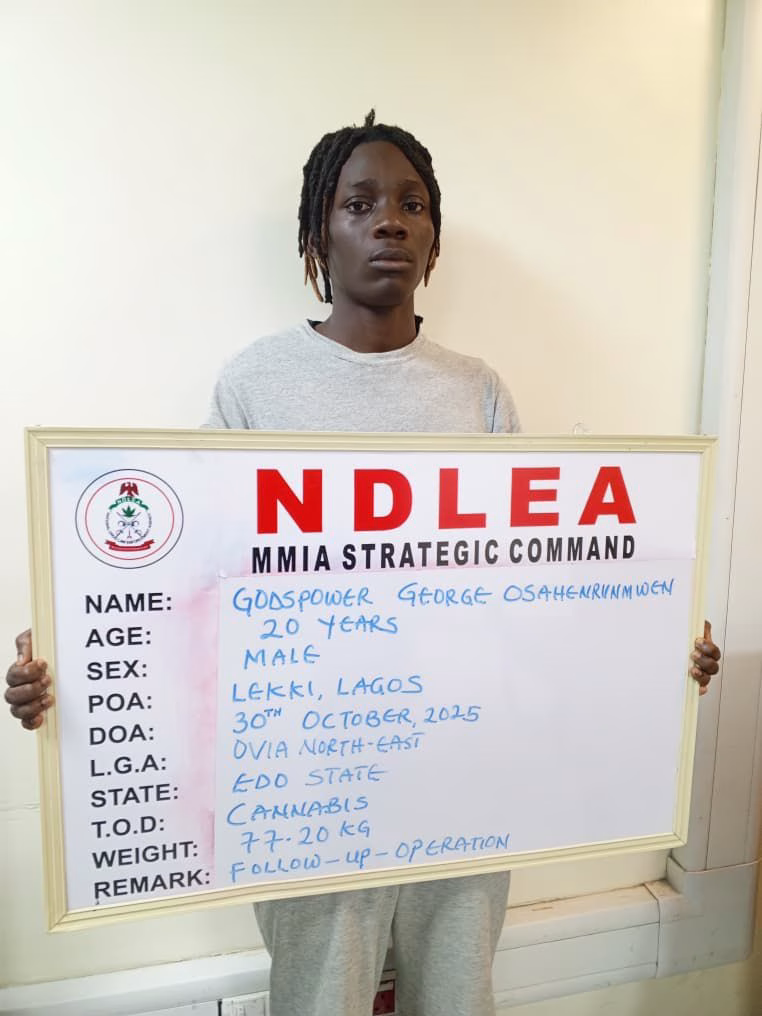 NDLEA
MMIA STRATEGIC COMMAND
NAME: GODSPOWER GEORGE OSAHENRUNMWEN
AGE: 20 YEARS
SEX: MALE
POA: LEKKI, LAGOS
DOA: 30TH OCTOBER, 2025
L.G.A: OVIA NORTH-EAST
STATE: EDO STATE
T.O.D: CANNABIS
WEIGHT: 77.20 KG
REMARK: FOLLOW-UP-OPERATION
NDLEA